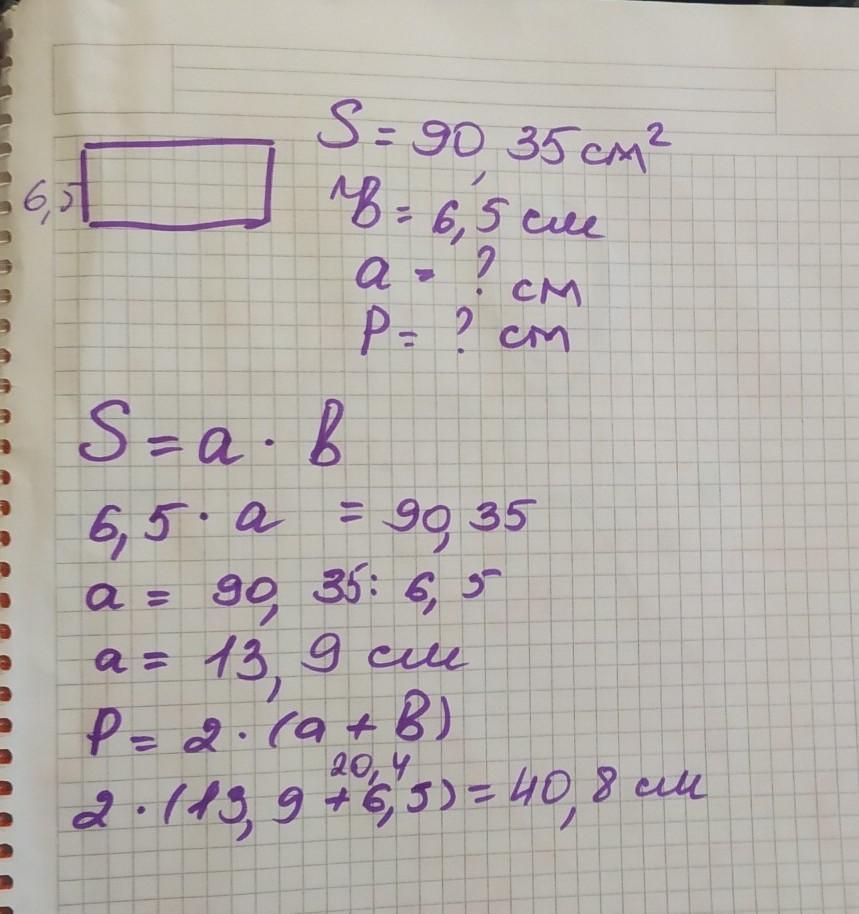 S = 90,35 см²
6,5
в = 6,5 см
а = ? см
P = ? см
S = а · в
6,5 · а = 90,35
а = 90,35 : 6,5
а = 13,9 см
P = 2 · (а + в)
20,4
2 · (13,9 + 6,5) = 40,8 см